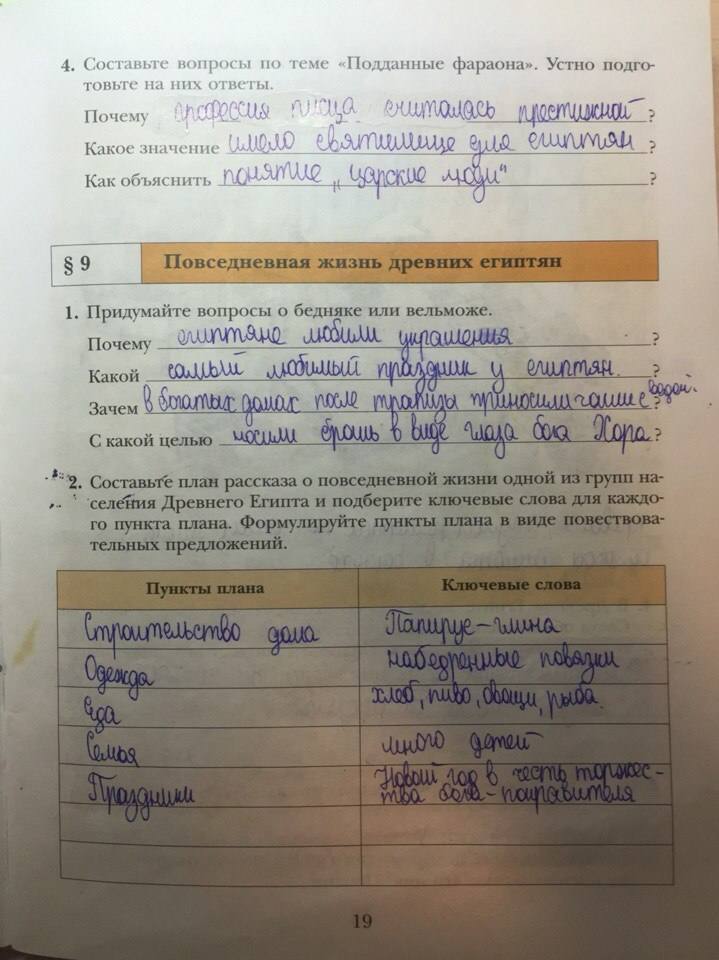 4. Составьте вопросы по теме «Подданные фараона». Устно подго-
товьте на них ответы.
Почему профессия писца считалась престижной?
Какое значение имело святилище для египтян?
Как объяснить понятие „царские люди“?
§ 9 Повседневная жизнь древних египтян
1. Придумайте вопросы о бедняке или вельможе.
Почему египтяне любили украшения?
Какой самый любимый праздник у египтян.?
Зачем в богатых домах после трапизы приносили чашие с водой.?
С какой целью носили брошь в виде глаза бога Хора?
2. Составьте план рассказа о повседневной жизни одной из групп на-
селения Древнего Египта и подберите ключевые слова для каждо-
го пункта плана. Формулируйте пункты плана в виде повествова-
тельных предложений.
Пункты плана Ключевые слова
Строительство дома Папирус-глина
Одежда набедренные повязки
Еда хлеб, пиво, овощи, рыба.
Семья много детей
Праздники Новый год в честь торжес-
тва бога-
19